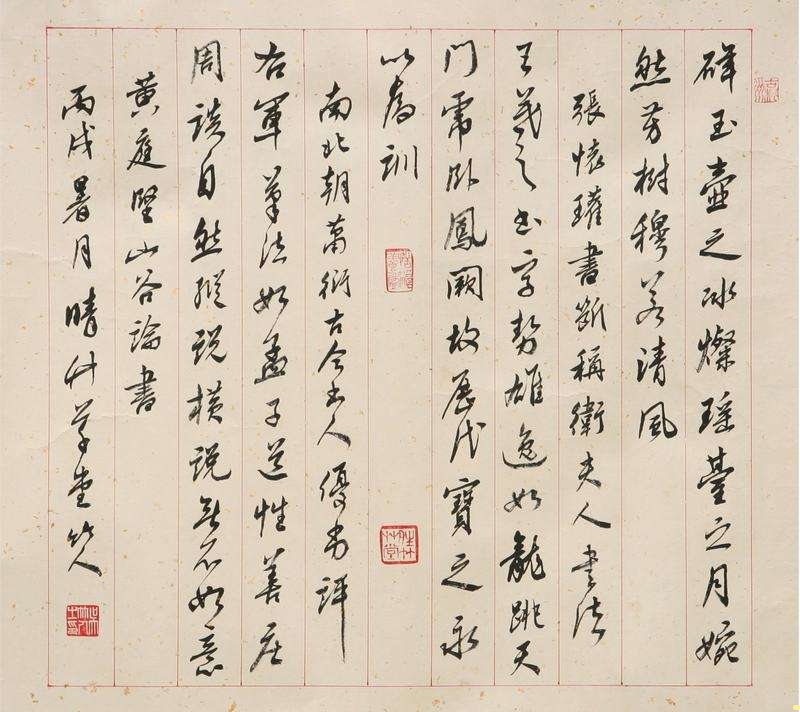 碎玉壺之冰爛瑤臺之月婉
然芳樹穆若清風
張懷瓘書斷稱衛夫人書法
王羲之書字勢雄逸如龍跳天
門虎臥鳳闕故歷代寶之永
以為訓
南北朝蕭衍古今書人優劣評
右軍筆法如孟子道性善莊
周談自然縱說橫說無不如意
黃庭堅山谷論書
丙戌暑月晴竹草堂